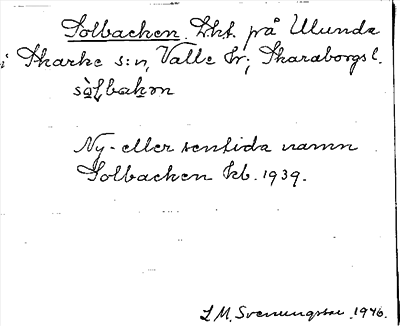 Solbacken. Lht. på Ulunda
i Skarke s:n, Valle hr; Skaraborgs l.
sòlbakon
Ny- eller sentida namn
Solbacken kb. 1939.
L M. Svenungsson 1946.